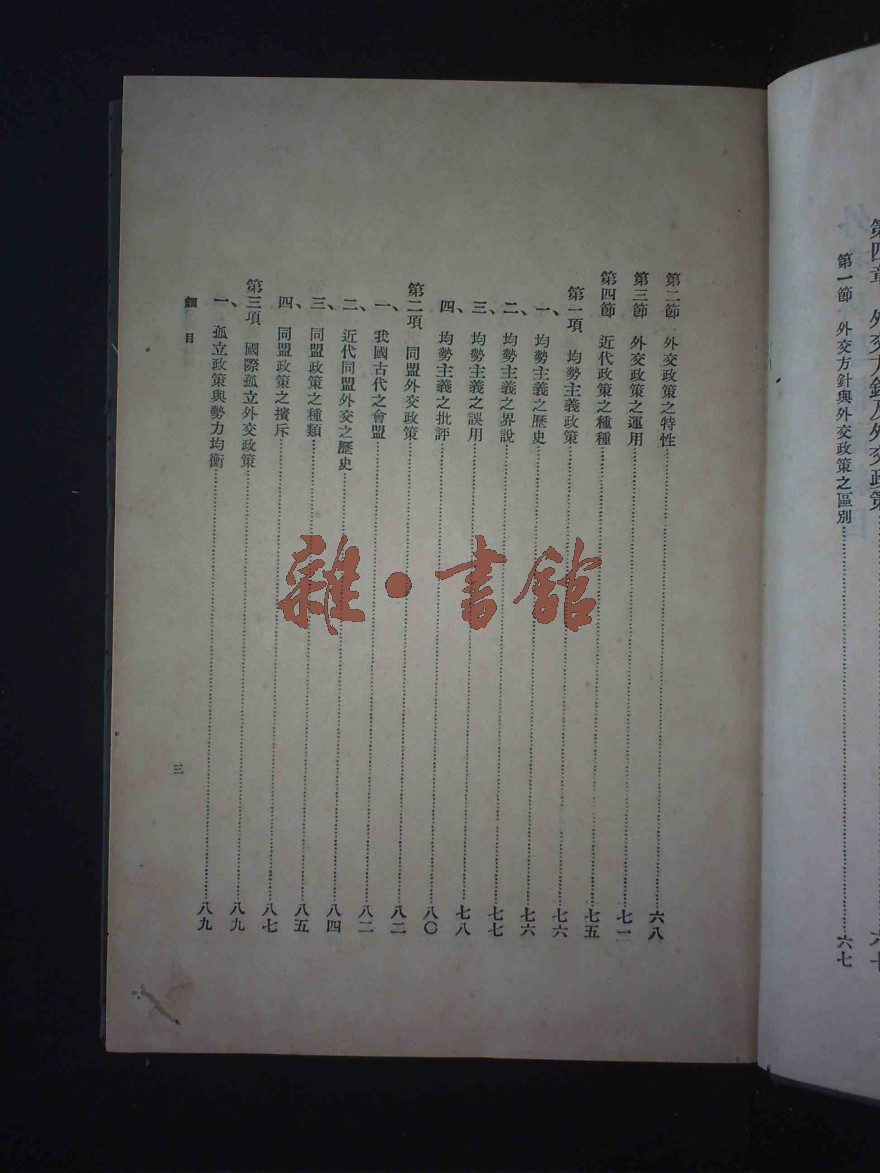 第四章 外交方針及外交政策
第一節 外交方針與外交政策之區別 六七
第二節 外交政策之特性 六八
第三節 外交政策之運用 七一
第四節 近代政策之種種 七五
第一項 均勢主義政策 七六
一、均勢主義之歷史 七六
二、均勢主義之界說 七七
三、均勢主義之誤用 七八
四、均勢主義之批評 八〇
第二項 同盟外交政策 八二
一、我國古代之會盟 八二
二、近代同盟外交之歷史 八四
三、同盟政策之種類 八五
四、同盟政策之擯斥 八七
第三項 國際孤立外交政策 八九
一、孤立政策與勢力均衡 八九
細目
三
雜·書館